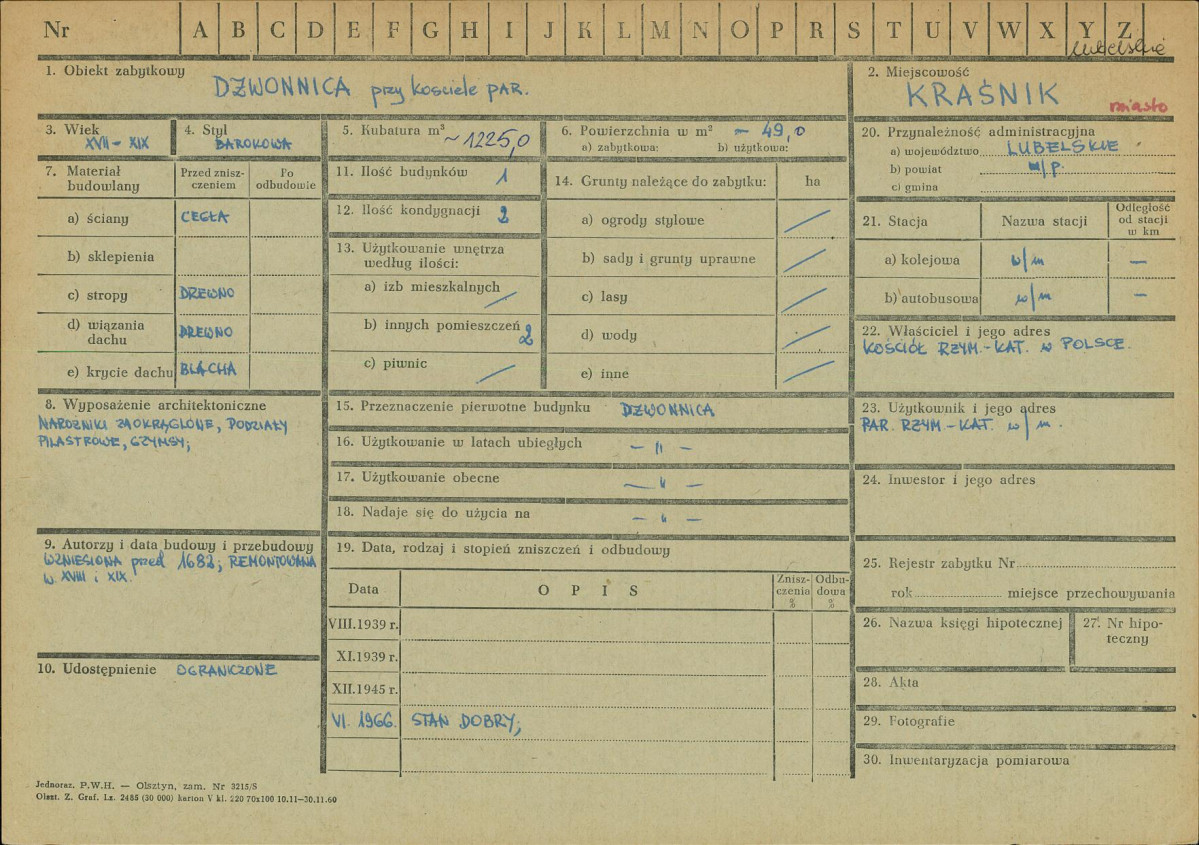 Nr A B C D E F G H I J K L M N O P R S T U V W X Y Z
lubelskie
1. Obiekt zabytkowy
DZWONNICA przy kosciele PAR.
2. Miejscowość
KRAŚNIK
miasto
3. Wiek
XVII - XIX
4. Styl
BAROKOWA
5. Kubatura m³
~1225,0
6. Powierzchnia w m² ~ 49,0
a) zabytkowa: b) użytkowa:
20. Przynależność administracyjna
a) województwo LUBELSKIE
b) powiat w/p.
c) gmina
7. Materiał budowlany
Przed zniszczeniem
Po odbudowie
a) ściany CEGŁA
b) sklepienia
c) stropy DREWNO
d) wiązania dachu DREWNO
e) krycie dachu BLACHA
11. Ilość budynków 1
12. Ilość kondygnacji 2
13. Użytkowanie wnętrza
według ilości:
a) izb mieszkalnych /
b) innych pomieszczeń 2
c) piwnic /
14. Grunty należące do zabytku: ha
a) ogrody stylowe /
b) sady i grunty uprawne /
c) lasy /
d) wody /
e) inne /
21. Stacja Nazwa stacji
Odległość
od stacji
w km
a) kolejowa w/m —
b) autobusowa w/m —
22. Właściciel i jego adres
KOŚCIÓŁ RZYM.-KAT. w POLSCE.
8. Wyposażenie architektoniczne
NAROŻNIKI ZAOKRĄGLONE, PODZIAŁY
PILASTROWE, GZYMSY;
15. Przeznaczenie pierwotne budynku DZWONNICA
16. Użytkowanie w latach ubiegłych — " —
17. Użytkowanie obecne — " —
18. Nadaje się do użycia na — " —
23. Użytkownik i jego adres
PAR. RZYM.-KAT. w/m.
24. Inwestor i jego adres
9. Autorzy i data budowy i przebudowy
WZNIESIONA przed 1682; REMONTOWANA
w XVIII i XIX.
10. Udostępnienie OGRANICZONE
19. Data, rodzaj i stopień zniszczeń i odbudowy
Data OPIS
Znisz-
czenia
%
Odbu-
dowa
%
VIII.1939 r.
XI.1939 r.
XII.1945 r.
VI. 1966. STAN DOBRY;
25. Rejestr zabytku Nr
rok miejsce przechowywania
26. Nazwa księgi hipotecznej
27. Nr hipo-
teczny
28. Akta
29. Fotografie
30. Inwentaryzacja pomiarowa
Jednoraz. P.W.H. — Olsztyn, zam. Nr 3215/S
Olszt. Z. Graf. Lz. 2485 (30 000) karton V kl. 220 70x100 10.11—30.11.60